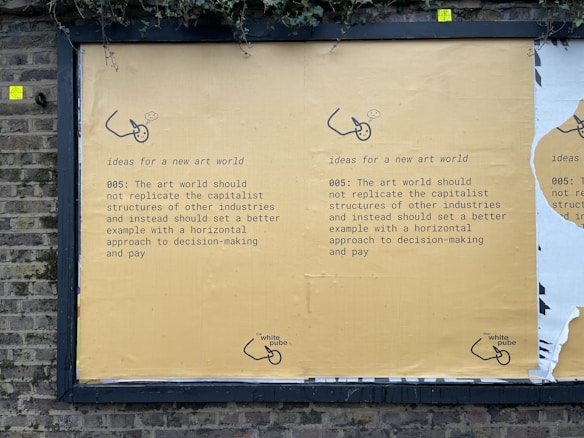 ideas for a new art world
005: The art world should
not replicate the capitalist
structures of other industries
and instead should set a better
example with a horizontal
approach to decision-making
and pay
the
white
pube
ideas for a new art world
005: The art world should
not replicate the capitalist
structures of other industries
and instead should set a better
example with a horizontal
approach to decision-making
and pay
the
white
pube
ideas fo
005:
not
struct